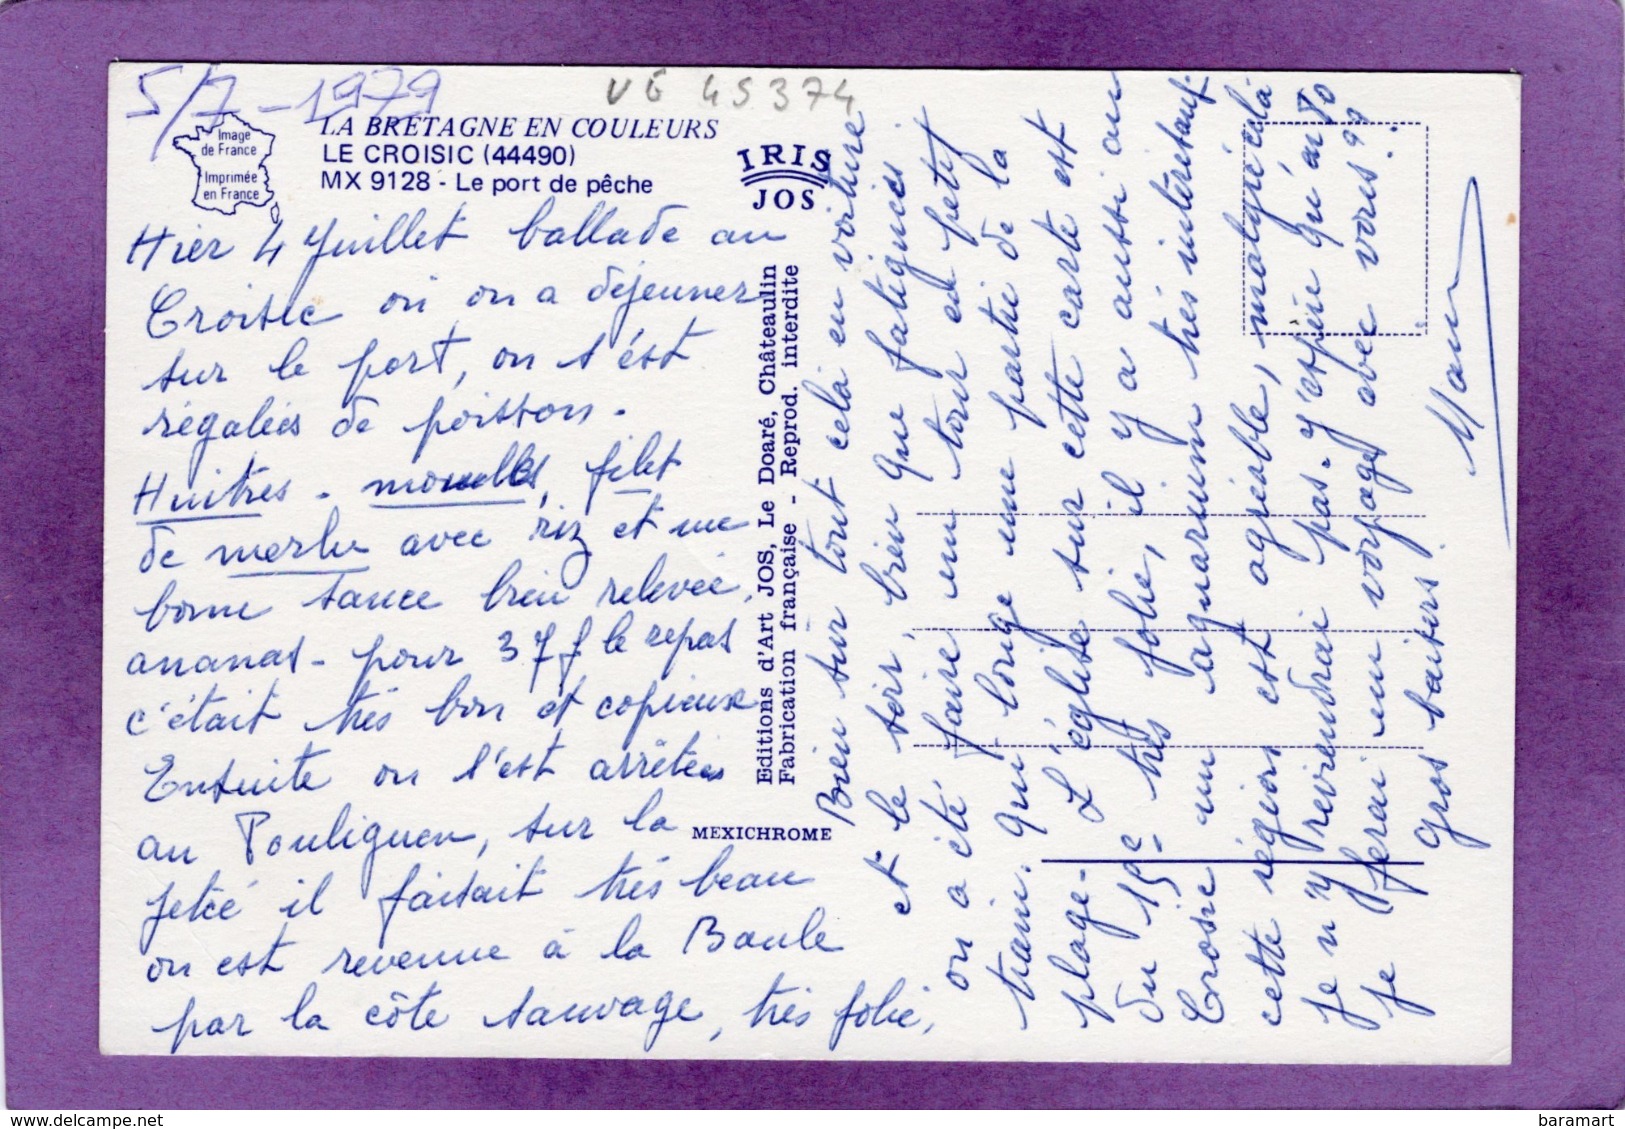 5/7-1979
VG 45374
Image
de France
Imprimée
en France
LA BRETAGNE EN COULEURS
LE CROISIC (44490)
MX 9128 - Le port de pêche
IRIS
JOS
Hier 4 Juillet ballade au
Croisic où on a déjeuner
sur le port, on s'est
régalées de poisson.
Huitres - moules, filet
de merlu avec riz et une
bonne sauce bien relevée,
ananas - pour 37f le repas
c'était très bon et copieux
Ensuite on s'est arrêtées
au Pouliguen, sur la
jetée il faisait très beau
on est revenue à la Baule
par la côte sauvage, très folie,
Editions d'Art JOS, Le Doaré, Châteaulin
Fabrication française - Reprod. interdite
MEXICHROME
Bien sûr tout cela en voiture
et le soir, bien que fatiguées
on a été faire un tour en petit
train. qui longe une partie de la
plage. L'église sur cette carte est
du 15e très folie, il y a aussi au
Croisic un aquarium très intéressant.
cette région est agréable, malgré cela
je n'y reviendrai pas. J'espère qu'en 80
je ferai un voyage avec vous??
gros baisers.
Mam
baramart
delcampe.net